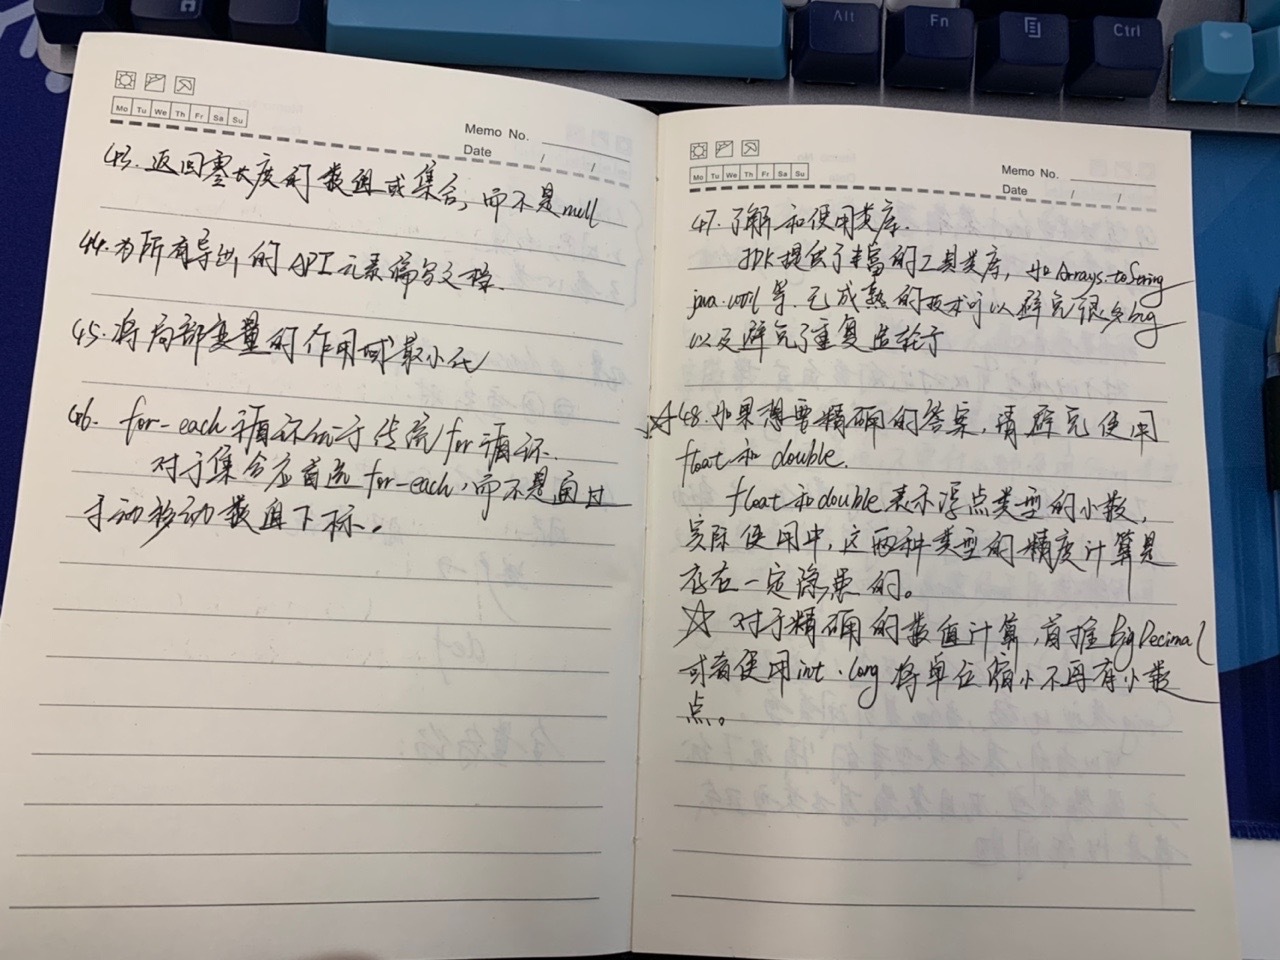 Alt
Fn
Ctrl
Mo Tu We Th Fr Sa Su
Memo No.
Date / /
43. 返回零长度的数组或集合，而不是null
44. 为所有导出的API元素编写文档.
45. 将局部变量的作用域最小化
46. for-each循环优于传统for循环.
对于集合应首选for-each，而不是通过
手动移动数组下标。
Mo Tu We Th Fr Sa Su
Memo No.
Date / /
47. 了解和使用类库.
JDK提供了丰富的工具类库，如Arrays.toString
java.util等. 已成熟的技术可以避免很多bug
以及避免了重复造轮子
☆48. 如果想要精确的答案，请避免使用
float和double.
float和double表示浮点类型的小数，
实际使用中，这两种类型的精度计算是
存在一定隐患的。
☆ 对于精确的数值计算，首推BigDecimal
或者使用int、long将单位缩小不再有小数
点。